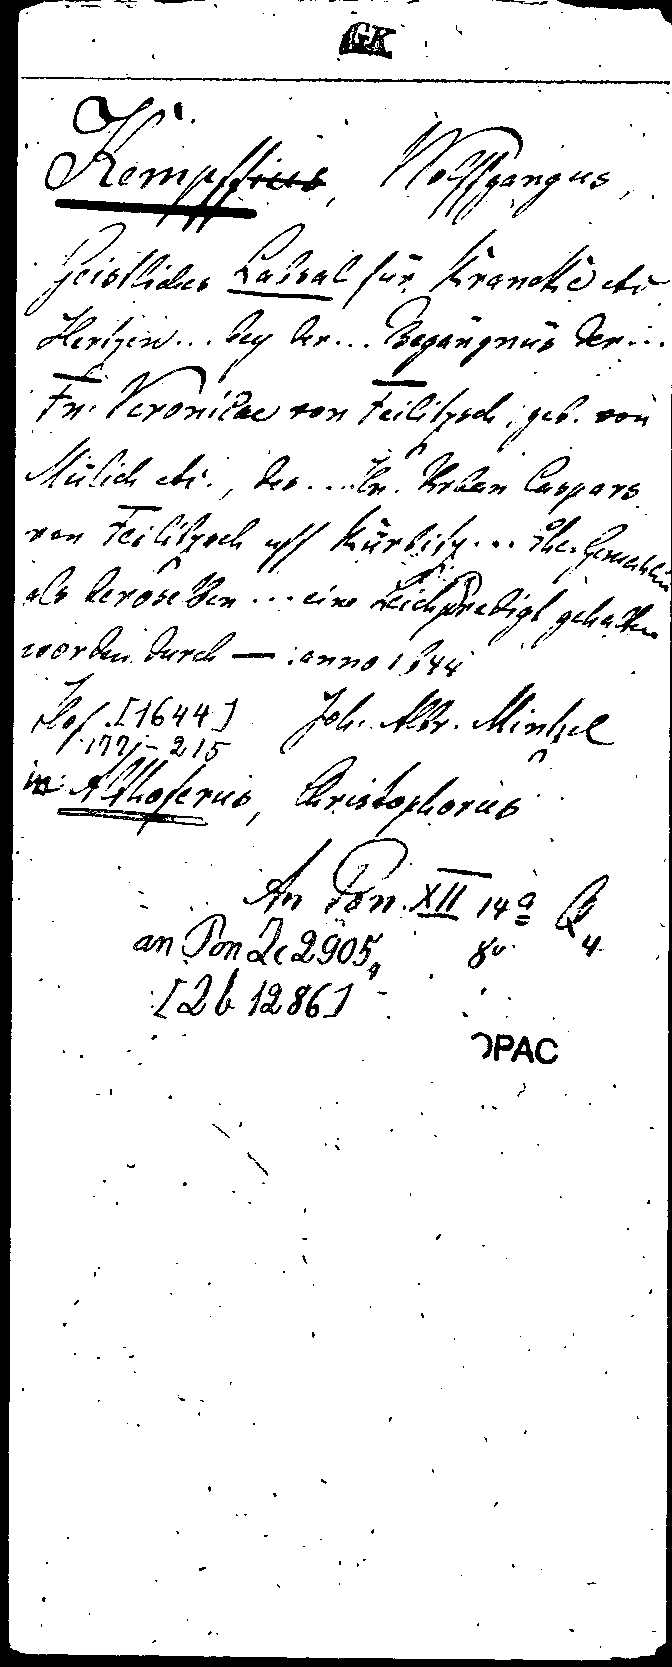 GK
Kempffius, Wolffgangus,
Geistliches Labsal für Krancke etc
Hertzen... bey der... Begängnüs der...
Fr. Veronicae von Feilitzsch, geb. von
Mülich etc., des... Hn. Urban Caspars
von Feilitzsch uff Kürbitz... Ehe-Gemahlin
als deroselben... eine Leichpredigt gehalten
worden durch — anno 1644
Hof. [1644] Joh. Albr. Mintzel
177j - 215
in: Althoferus, Christophorus
An Pon. XII 14a Q
4
an Pon Zc 2905,
[2b 1286]
OPAC